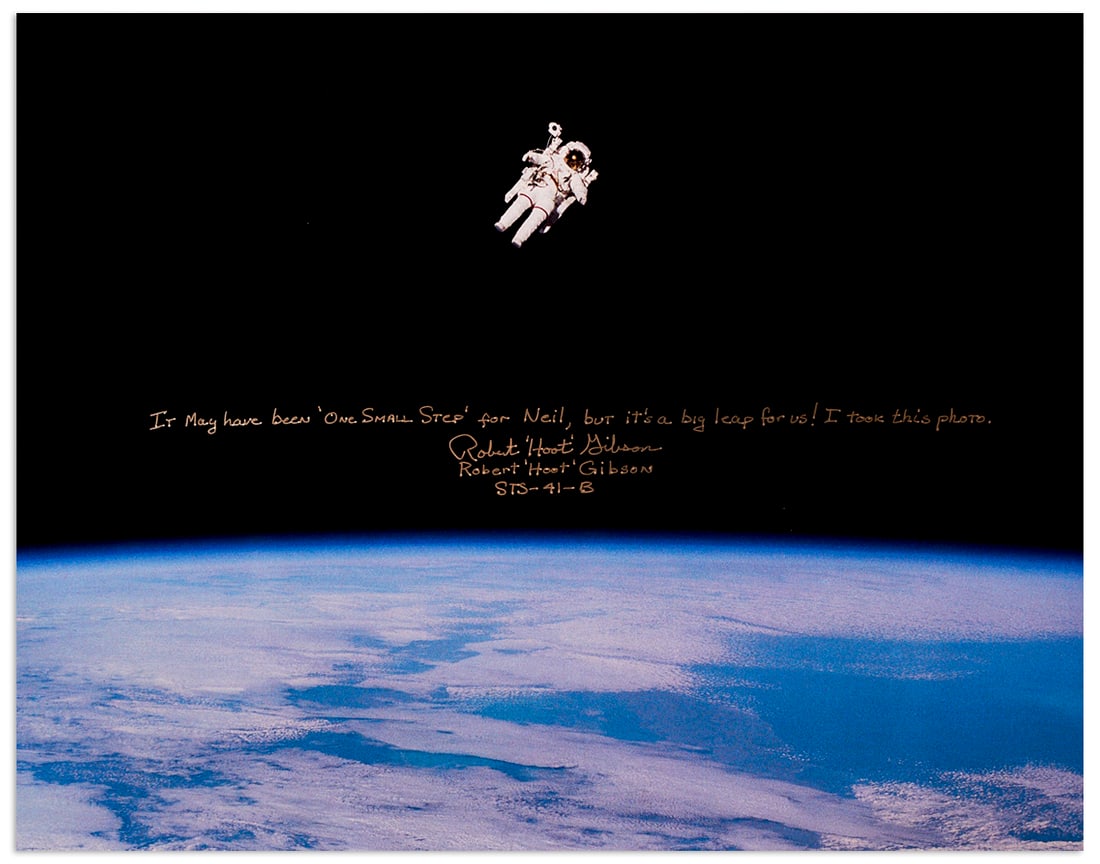 It may have been 'One Small Step' for Neil, but it's a big leap for us! I took this photo.
Robert 'Hoot' Gibson
Robert 'Hoot' Gibson
STS-41-B